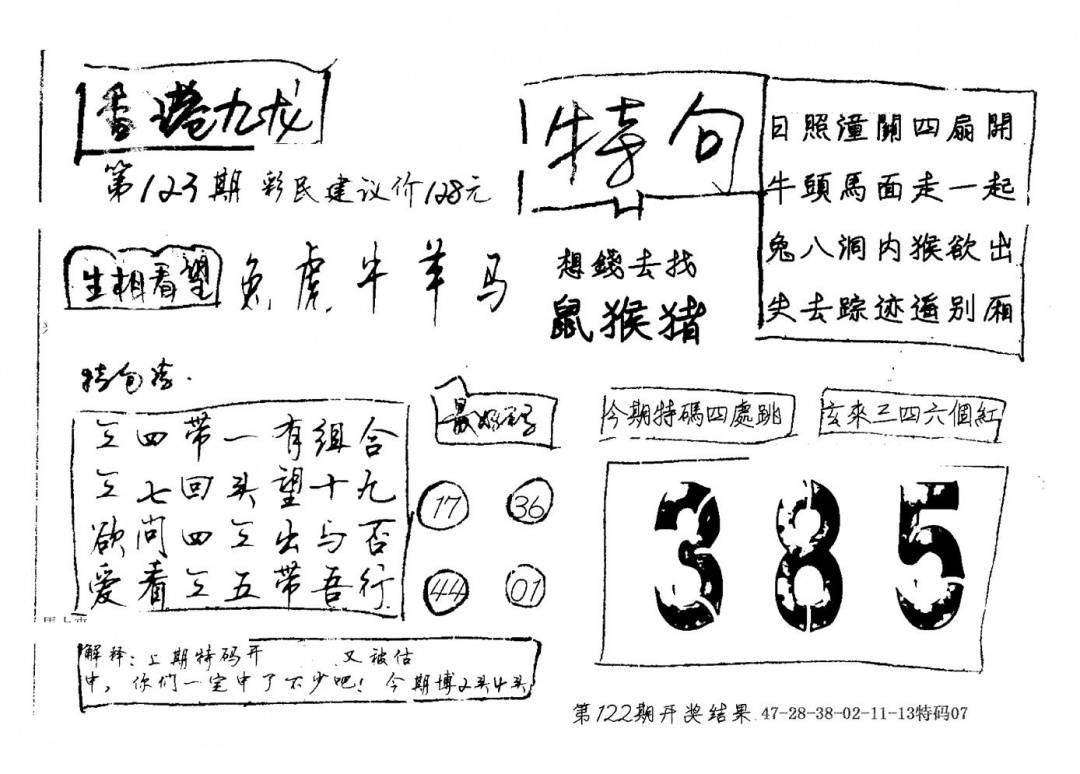 香港九龙
第123期 彩民建议价128元
特句
日照潼關四扇開
牛頭馬面走一起
兔八洞内猴欲出
失去踪迹遁别厢
生相看望
兔虎牛羊马
想錢去找
鼠猴猪
四带一有组合
七回头望十九
欲问四 出与否
爱看 五带吾行
17 36
44 01
今期特碼四處跳
玄來三四六個紅
385
解释:上期特码开 又被估
中,你们一定中了不少吧!今期博2头4头
第122期开奖结果.47-28-38-02-11-13特码07